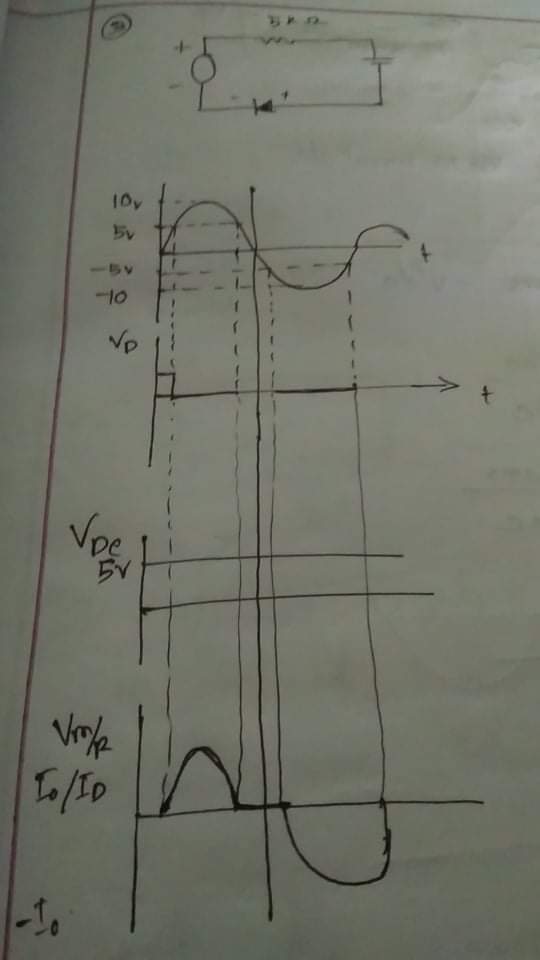 3)
5KΩ
+
-
- +
10v
5v
-5v
-10
t
VD
t
VDC
5v
Vm/R
Io/ID
-Io